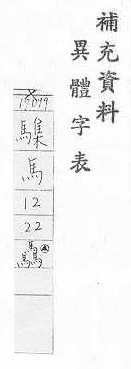 補充資料
異體字表
馬
12
22
驫